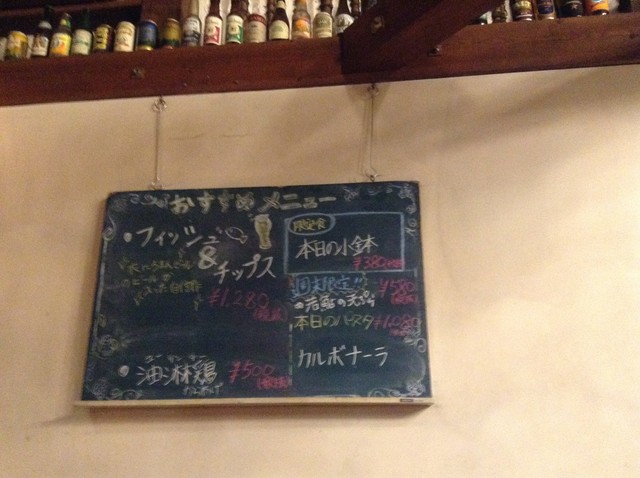 おすすめメニュー
・フィッシュ
&
チップス
¥1,280
(税抜)
ユーリンチー
・油淋鶏
¥500
(税抜)
限定食
本日の小鉢
¥380(税抜)
週末限定!!
¥580
(税抜)
の天ぷら
本日のパスタ
¥1,080
(税抜)
カルボナーラ